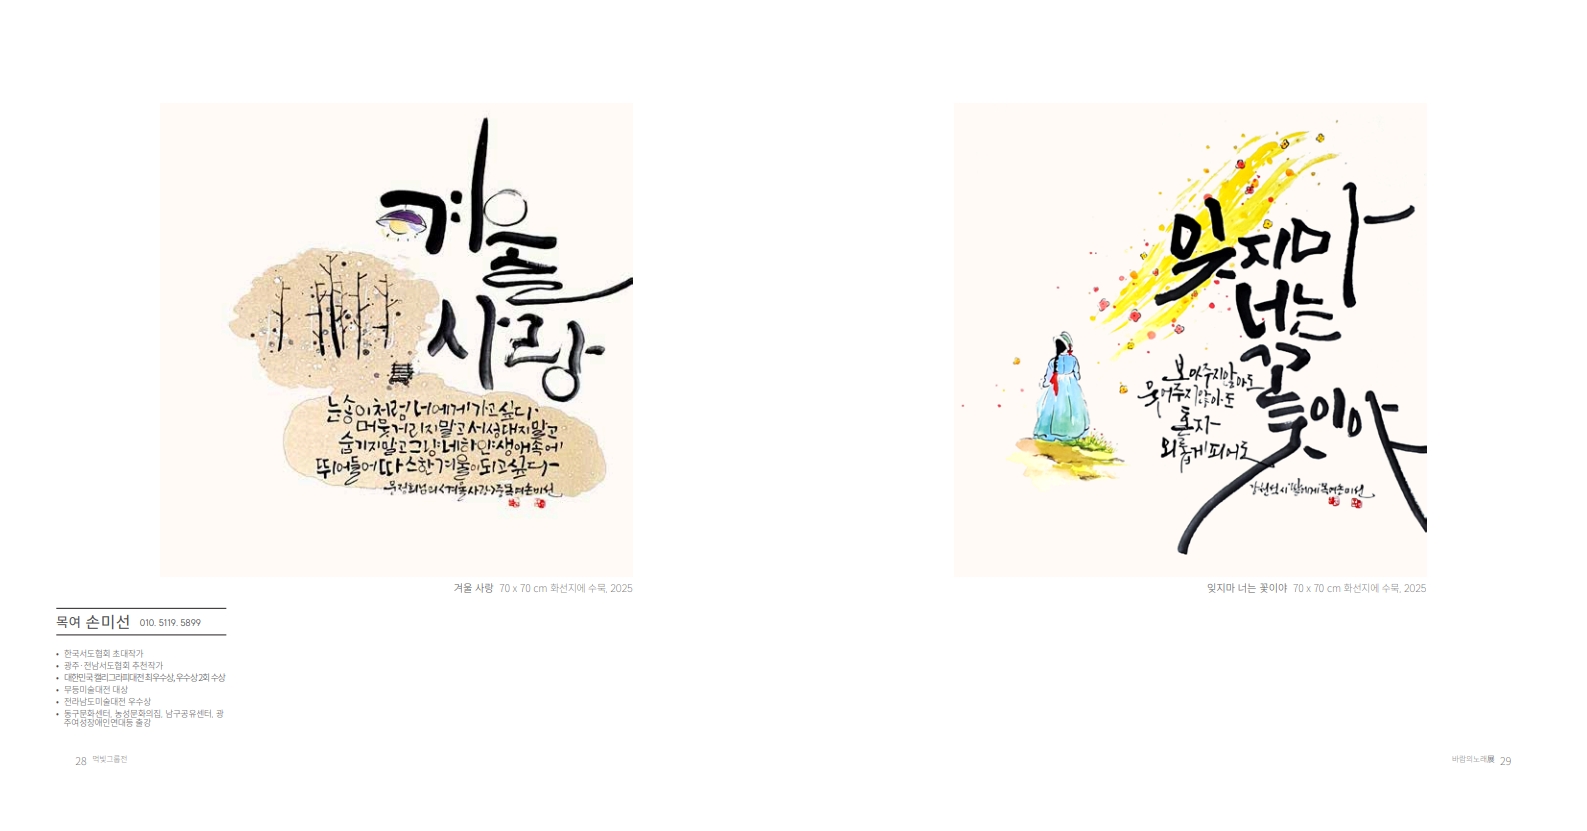 겨울
사랑
눈송이처럼 너에게 가고 싶다.
머뭇거리지 말고 서성대지 말고
숨기지 말고 그냥 네 하얀 생애 속에
뛰어들어 따스한 겨울이 되고 싶다
문정희님의 <겨울사랑> 중 목여 손미선
겨울 사랑 70 x 70 cm 화선지에 수묵, 2025
목여 손미선 010. 5119. 5899
• 한국서도협회 초대작가
• 광주·전남서도협회 추천작가
• 대한민국 캘리그라피대전 최우수상, 우수상 2회 수상
• 무등미술대전 대상
• 전라남도미술대전 우수상
• 동구문화센터, 농성문화의집, 남구공유센터, 광
주여성장애인연대등 출강
28 먹빛그룹전
잊지마
너는
꽃이야
보아주지않아도
웃어주지않아도
혼자
외롭게 피어도
목여 손미선
잊지마 너는 꽃이야 70 x 70 cm 화선지에 수묵, 2025
바람의노래展 29